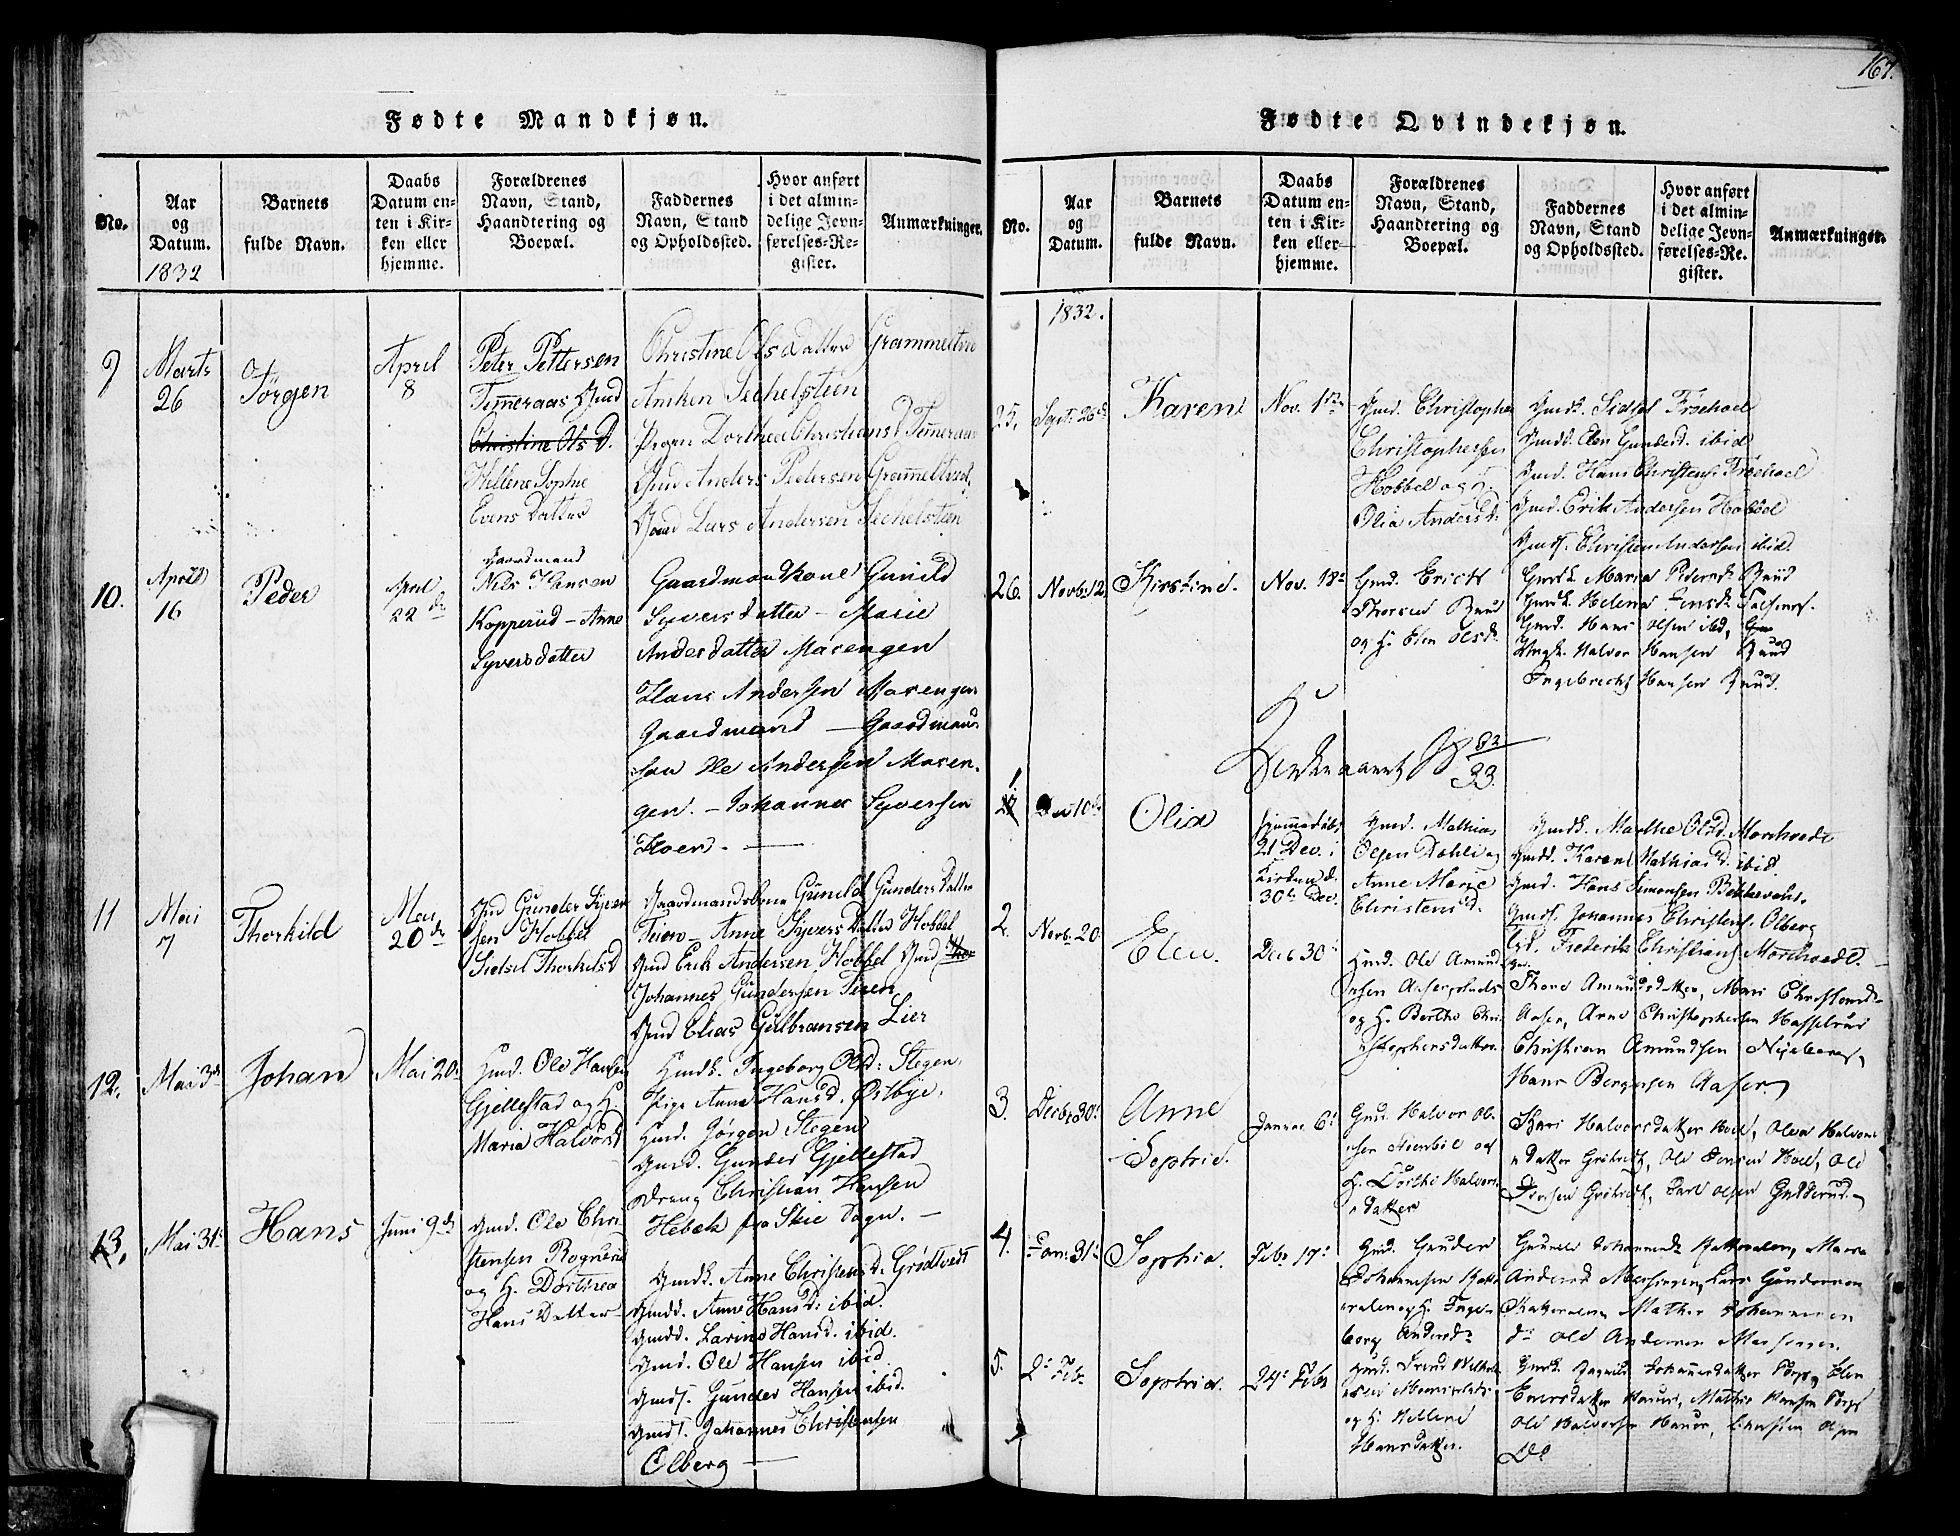 167.
Fødte Mandkjøn.
No.
Aar
og
Datum.
1832
Barnets
fulde Navn.
Daabs
Datum en-
ten i Kir-
ken eller
hjemme.
Forældrenes
Navn, Stand,
Haandtering og
Boepæl.
Faddernes
Navn, Stand
og Opholdssted.
Hvor anført
i det almin-
delige Jevn-
førelses-Re-
gister.
Anmærkninger.
9
Marts
26
Jørgen
April
8
Peter Pettersen
Temeraas Gmd
Christine Ols D.
Hellene Sophie
Evens Datter
Christine Ols Datter Grammeltvedt
Aniken Sechelsteen
Pigen Dorthea Christians D Temeraas
Gmd Anders Pedersen Grameltvedt
Gmd Lars Andersen Sechelsteen
10.
April
16
Peder
April
22 de
Gaardmand
Niels Hansen
Kopperud - Anne
Syversdatter
Gaardmandkone Gunild
Syversdatter - Marie
Andersdatter Marengen
Hans Andersen Marengen
Gaardmand - Gaardmands
søn Ole Andersen Maren-
gen. - Johannes Syversen
Hoen. -
11
Mai
7
Thorkild
Mai
20 de
Gmd Gunder Syver
sen Hobbel
Sidsel Thorkilsd
Gaardmandskone Gunild Gunders Datter
Teien - Anne Syvers Datter Hobbel
Gmd Erik Andersen Hobbel Gmd
Johannes Gundersen Teien
Gmd Elias Gulbransen Lier
12.
Mai 3de
Johan
Mai 20.
Hmd. Ole Hansen
Gjellestad og H.
Maria Halvorsd
Hmdk. Ingeborg Olsd: Stegen,
Pige Anne Hansd. Østbye,
Hmd. Jørgen Stegen
Gmd. Gunder Gjellestad
Dreng Christian Hansen
Hebæk fra Skie Sogn. -
13,
Mai 31te
Hans
Juni 9de
Gmd. Ole Chri
stensen Rognerud
og H. Dorthea
Hans Datter
Gmdk. Anne Christens D. Grødtvedt
Gmdd. Anne Hans D: ibid.
Gmdd. Larine Hansd. ibid.
Gmd. Ole Hansen ibid.
Gmds. Gunder Hansen ibid.
Gmds. Johannes Christensen
Ølberg
Fødte Qvindekjøn.
No.
Aar
og
Datum.
Barnets
fulde Navn.
Daabs
Datum en-
ten i Kir-
ken eller
hjemme.
Forældrenes
Navn, Stand,
Haandtering og
Boepæl.
Faddernes
Navn, Stand
og Opholdssted.
Hvor anført
i det almin-
delige Jevn-
førelses-Re-
gister.
Anmærkninger.
1832.
25.
Sept. 26de
Karen
Nov. 1ste
Gmd. Christopher
Christophersen
Hobbel og H.
Olia Andersd:
Gmdk. Sidsel Froehoel
Gmdk. Elen Gundersd. ibid
Gmd. Hans Christens. Froehoel
Gmd. Erik Andersen Hobbel
Gmds. Christen Andersen ibid.
26.
Novb. 12
Kirstine.
Nov. 18de
Gmd. Erich
Thorsen Ruud
og H. Elen Olsd.
Gmdk. Maria Pedersd. Ruud
Gmdk. Helena Jensd.
Gmd. Hans Olsen ibd,
Ungk. Halvor Hansen Ruud
Ingebrecht Hansen Ruud.
Kirkeaaret 18 32/33.
1.
27
Dec 10de
Olia
hjemmedøbt
21 Dec. i
Kirken d.
30te Dec.
Gmd. Mathias
Olsen Dahl og
Anne Marie
Christensd.
Gmdk. Marthe Olsd. Morckvedt
Gmdd. Karen Mathias D. ibid.
Gmd. Hans Simonsen Bekkevold.
Gmds. Johannes Christens. Ølberg
Frederik Christians. Morckvedt. -
2.
Novb. 20
Elen.
Decb 30te
Hmd. Ole Amund
sen Aaserplads
og H. Berthe Chri
stophersdatter
Thore Amundsdatter, Mari Christensd.
Aaser, Arne Christophersen Hasselrud
Christian Amundsen Nyeberg,
Hans Bergersen Aaser.
3.
Decb. 30.
Anne
Sophie.
Januar 6te
Gmd. Halvor Ol
sen Steenbøl og
H. Dorthe Halvors
datter
Kari Halvorsdatter Hoel, Olea Halvors
datter Grøtvedt, Ole Jensen Hoel, Ole
Jensen Grøtvedt, Carl Olsen Gulderud
4.
Jan. 31te
Sophia.
Febr 17de
Gmd. Gunder
Johannesen
og H. Inge-
borg Andersd.
Gunild Johannesd. Maria
Andersd. Lars Gundersen
Mathis Johannesen
Ole Andersen
5.
2de Feb.
Sophia.
24de Febr
Gmd.
og H. Hellene
Hansdatter.
Gmdk. Johannesdatter Torp, Elen
Evensdatter Hauer, Mathis Hansen Torp
Ole Halvorsen Hauer, Olsen